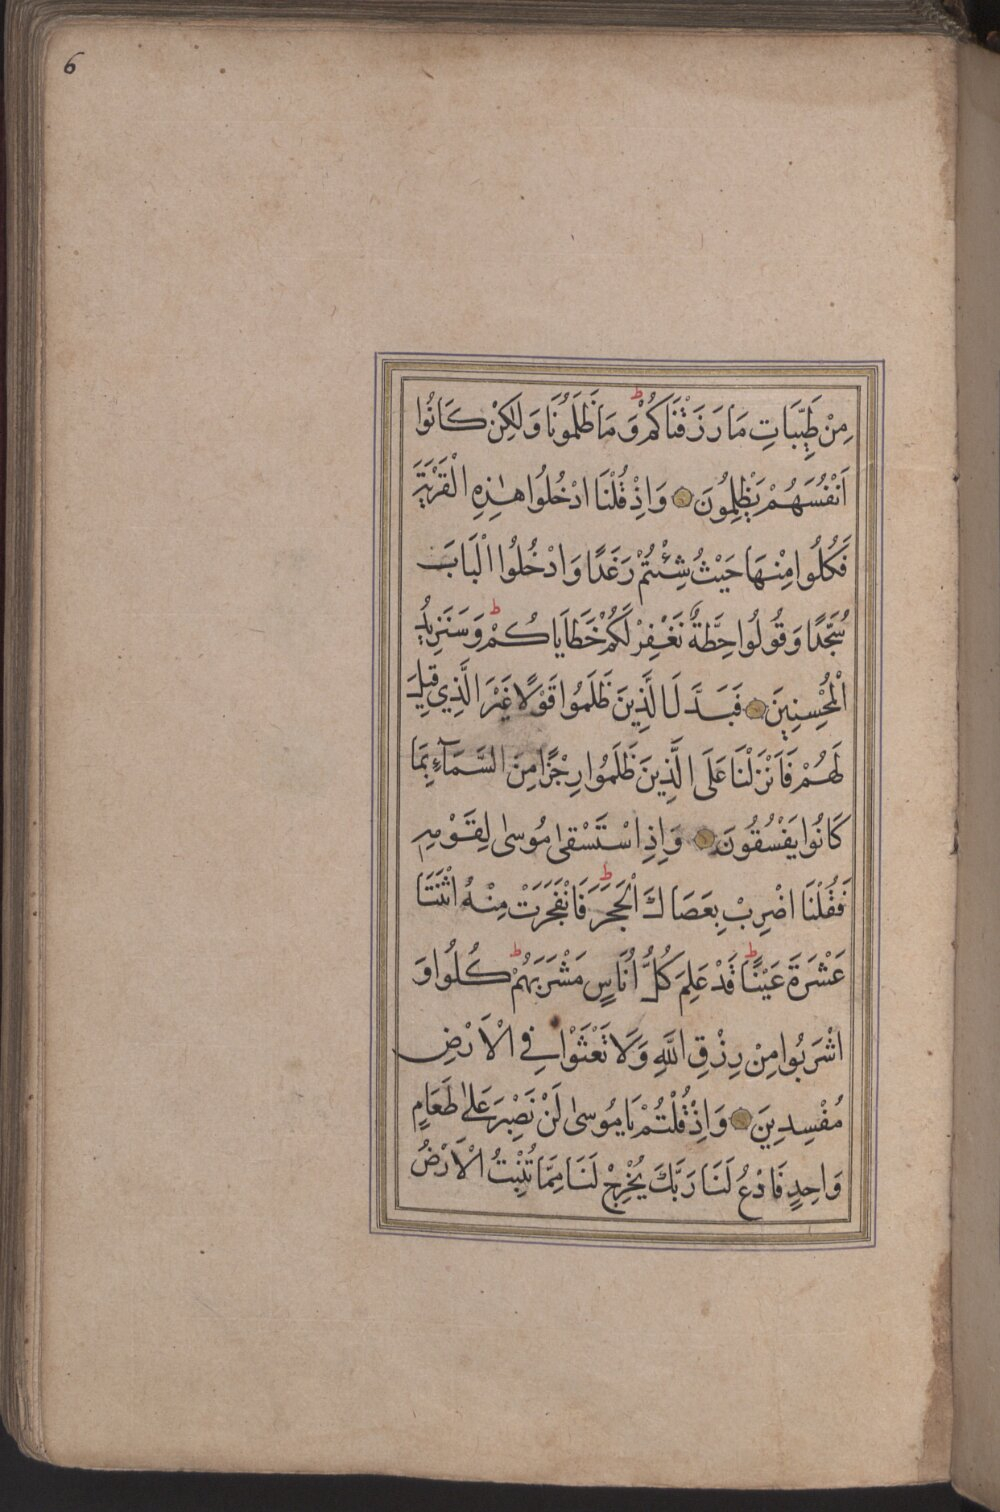 6
مِنْ طَيِّبَاتِ مَا رَزَقْنَاكُمْ وَمَا ظَلَمُونَا وَلٰكِنْ كَانُوا
اَنْفُسَهُمْ يَظْلِمُونَ وَاِذْ قُلْنَا ادْخُلُوا هٰذِهِ الْقَرْيَةَ
فَكُلُوا مِنْهَا حَيْثُ شِئْتُمْ رَغَدًا وَادْخُلُوا الْبَابَ
سُجَّدًا وَقُولُوا حِطَّةٌ نَغْفِرْ لَكُمْ خَطَايَاكُمْ وَسَنَزِيدُ
الْمُحْسِنِينَ فَبَدَّلَ الَّذِينَ ظَلَمُوا قَوْلًا غَيْرَ الَّذِي قِيلَ
لَهُمْ فَاَنْزَلْنَا عَلَى الَّذِينَ ظَلَمُوا رِجْزًا مِنَ السَّمَآءِ بِمَا
كَانُوا يَفْسُقُونَ وَاِذِ اسْتَسْقٰى مُوسٰى لِقَوْمِهِ
فَقُلْنَا اضْرِبْ بِعَصَاكَ الْحَجَرَ فَانْفَجَرَتْ مِنْهُ اثْنَتَا
عَشْرَةَ عَيْنًا قَدْ عَلِمَ كُلُّ اُنَاسٍ مَشْرَبَهُمْ كُلُوا وَ
اشْرَبُوا مِنْ رِزْقِ اللّٰهِ وَلَا تَعْثَوْا فِي الْاَرْضِ
مُفْسِدِينَ وَاِذْ قُلْتُمْ يَا مُوسٰى لَنْ نَصْبِرَ عَلٰى طَعَامٍ
وَاحِدٍ فَادْعُ لَنَا رَبَّكَ يُخْرِجْ لَنَا مِمَّا تُنْبِتُ الْاَرْضُ